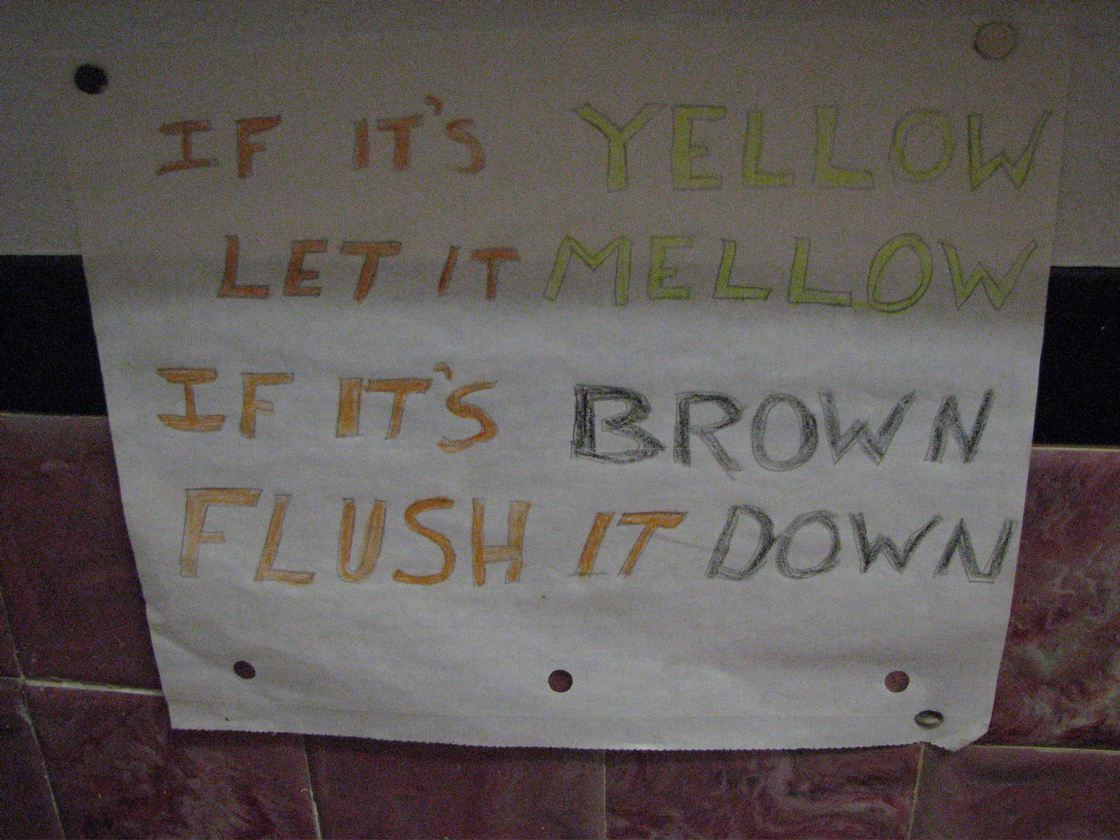 IF IT'S YELLOW
LET IT MELLOW
IF IT'S BROWN
FLUSH IT DOWN